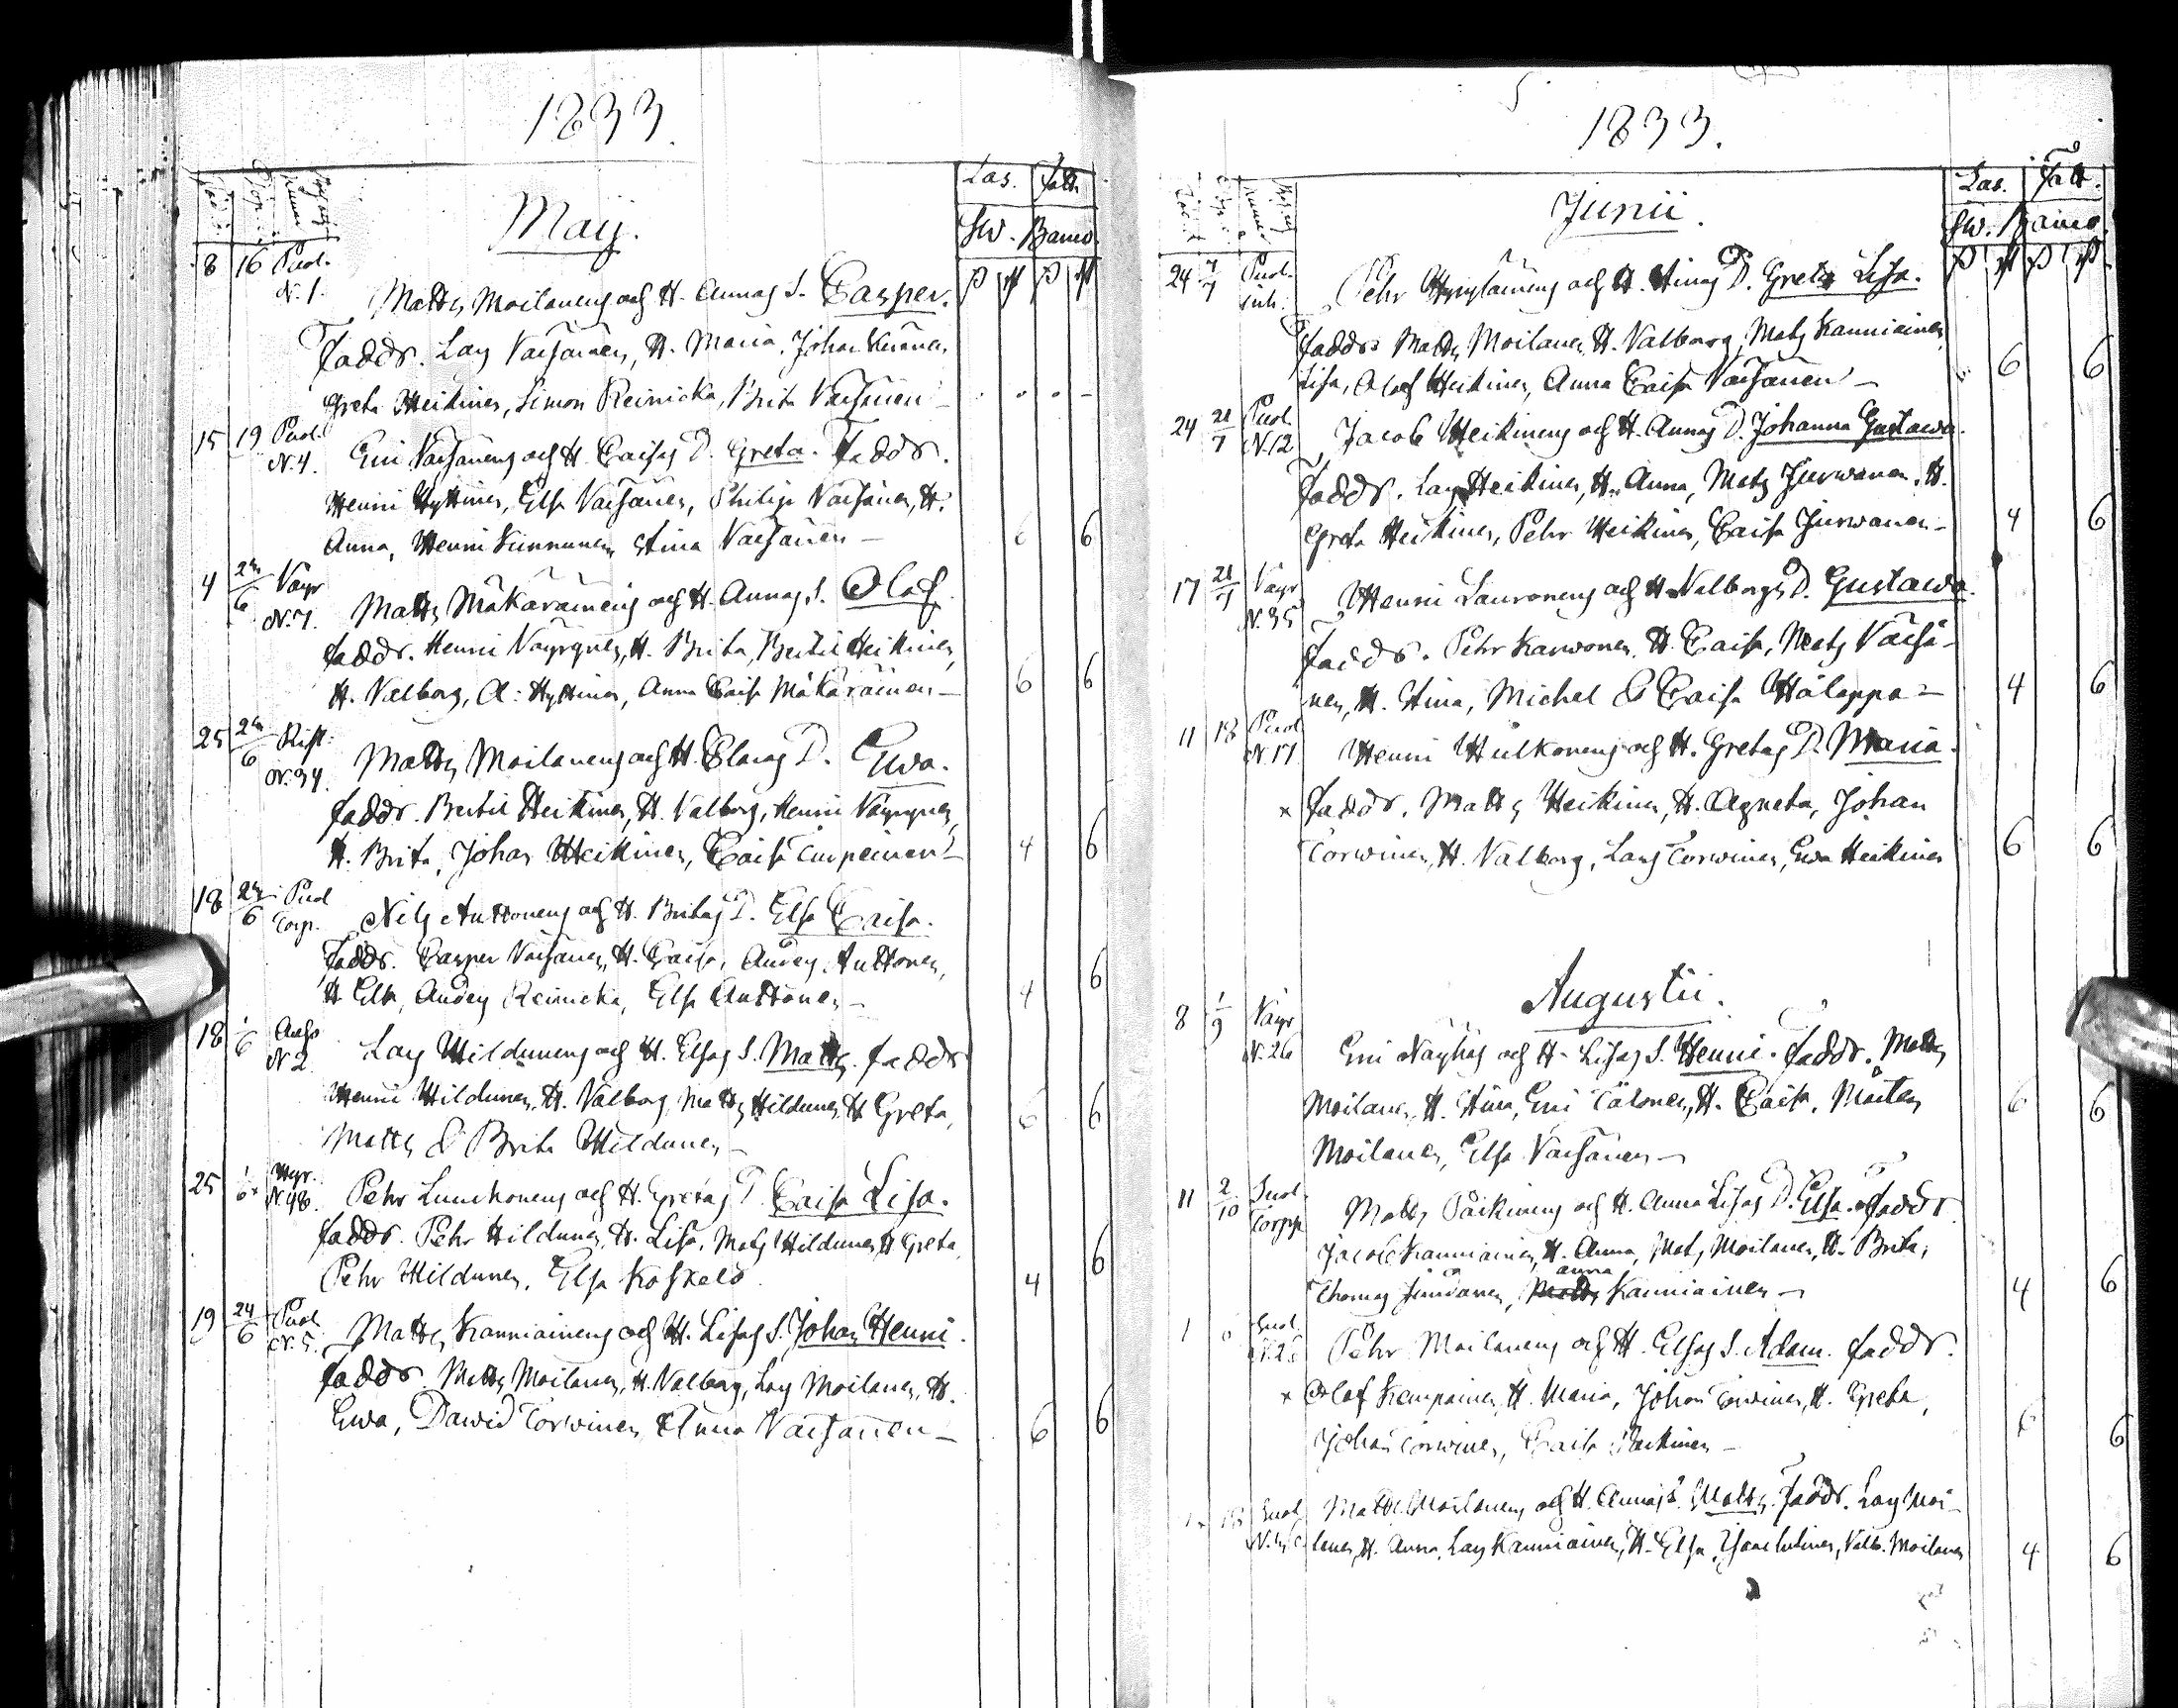 1833.
Las. Fatt.
Maij.
Sw. Banco.
8 16 Puol. N. 1.
Matts Moilanens och H. Annas S. Casper.
Faddr. Lars Väisänen, H. Maria, Johan
Greta Heikinen, Simon Reinicka, Brita Väisänen
15 19 Puol. N. 4. Eric Väisänens och H. Caisas D. Greta. Faddr.
Henric Hyttinen, Elsa Väisänen, Philip Väisänen, H.
Anna, Henric Kinnunen, Stina Väisänen — 6 6
4 Väyr N. 7. Matts Mäkäräinens och H. Annas S. Olof.
Faddr. Henric Väyrynen, H. Brita, Bertil Heikinen,
H. Valborg, A: Hyttinen, Anna Caisa Mäkäräinen — 6 6
25 Rist: N. 34. Matts Moilanens och H. Elinas D. Ewa.
Faddr. Bertil Heikinen, H. Valborg, Henric Väyrynen,
H. Brita, Johan Heikinen, Caisa Turpeinen — 4 6
18 Puol Torp. Nils Anttonens och H. Britas D. Elsa Caisa.
Faddr. Casper Väisänen, H. Caisa, Anders Anttonen,
H. Elsa, Anders Reinicka, Elsa Anttonen — 4 6
18 1/6 N. 2 Lars Hildunens och H. Elsas S. Matts. Faddr
Henric Hildunen, H. Valborg, Matts Hildunen, H. Greta,
Matts & Brita Hildunen — 6 6
25 N. 48. Pehr Lunckonens och H. Gretas D. Caisa Lisa.
Faddr. Pehr Hildunen, H. Lisa, Mats Hildunen, H. Greta,
Pehr Hildunen, Elsa Koskelo. 4 6
19 24/6 Puol N. 5. Matts Kanniainens och H. Lisas S. Johan Henric.
Faddr. Matts Moilanen, H. Valborg, Lars Moilanen, H.
Ewa, David Torvinen, Anna Väisänen — 6 6
1833.
Las. Fatt.
Junii.
Sw. Banco.
24 7/7 Puol. inh. Pehr och H. Stinas D. Greta Lisa.
Faddr: Matts Moilanen, H. Valborg, Mats Kanniainen,
Lisa, Olof Heikinen, Anna Caisa Väisänen — 6 6
24 21/7 Puol N. 12 Jacob Heikinens och H. Annas D. Johanna Gustava.
Faddr. Lars Heikinen, H. Anna, Mats Jurvanen, H.
Greta Heikinen, Pehr Heikinen, Caisa Jurvanen — 4 6
17 21/7 Väyr N. 35 Henric Lauronens och H. Valborgs D. Gustava.
Faddr. Pehr Karvonen, H. Caisa, Mats Väisä-
nen, H. Stina, Michel & Caisa Hälappa — 4 6
11 18 Puol N. 17 Henric Hulkonens och H. Gretas D. Maria.
x Faddr. Matts Heikinen, H. Agneta, Johan
Torvinen, H. Valborg, Lars Torvinen, Ewa Heikinen 6 6
Augustii.
8 1/9 Väyr N. 26 Eric Näyhäs och H. Lisas S. Henric. Faddr. Matts
Moilanen, H. Stina, Eric Tälonen, H. Caisa, Mårten 6 6
Moilanen, Elsa Väisänen —
11 2/10 Suol. Torpp Matts Päikinens och H. Anna Lisas D. Elsa. Faddr
Jacob Kanniainen, H. Anna, Mats Moilanen, H. Brita,
Thomas Juntunen, anna Kanniainen — 4 6
Pehr Moilanens och H. Elsas S. Adam. Faddr.
x Olof Kemppainen, H. Maria, Johan Torvinen, H. Greta,
Johan Torvinen, Caisa Päikinen — 6 6
Suol Matts Moilanens och H. Annas S. Matts. Faddr. Lars Moi-
lanen, H. Anna, Lars Kanniainen, H. Elsa, Valb. Moilanen 4 6